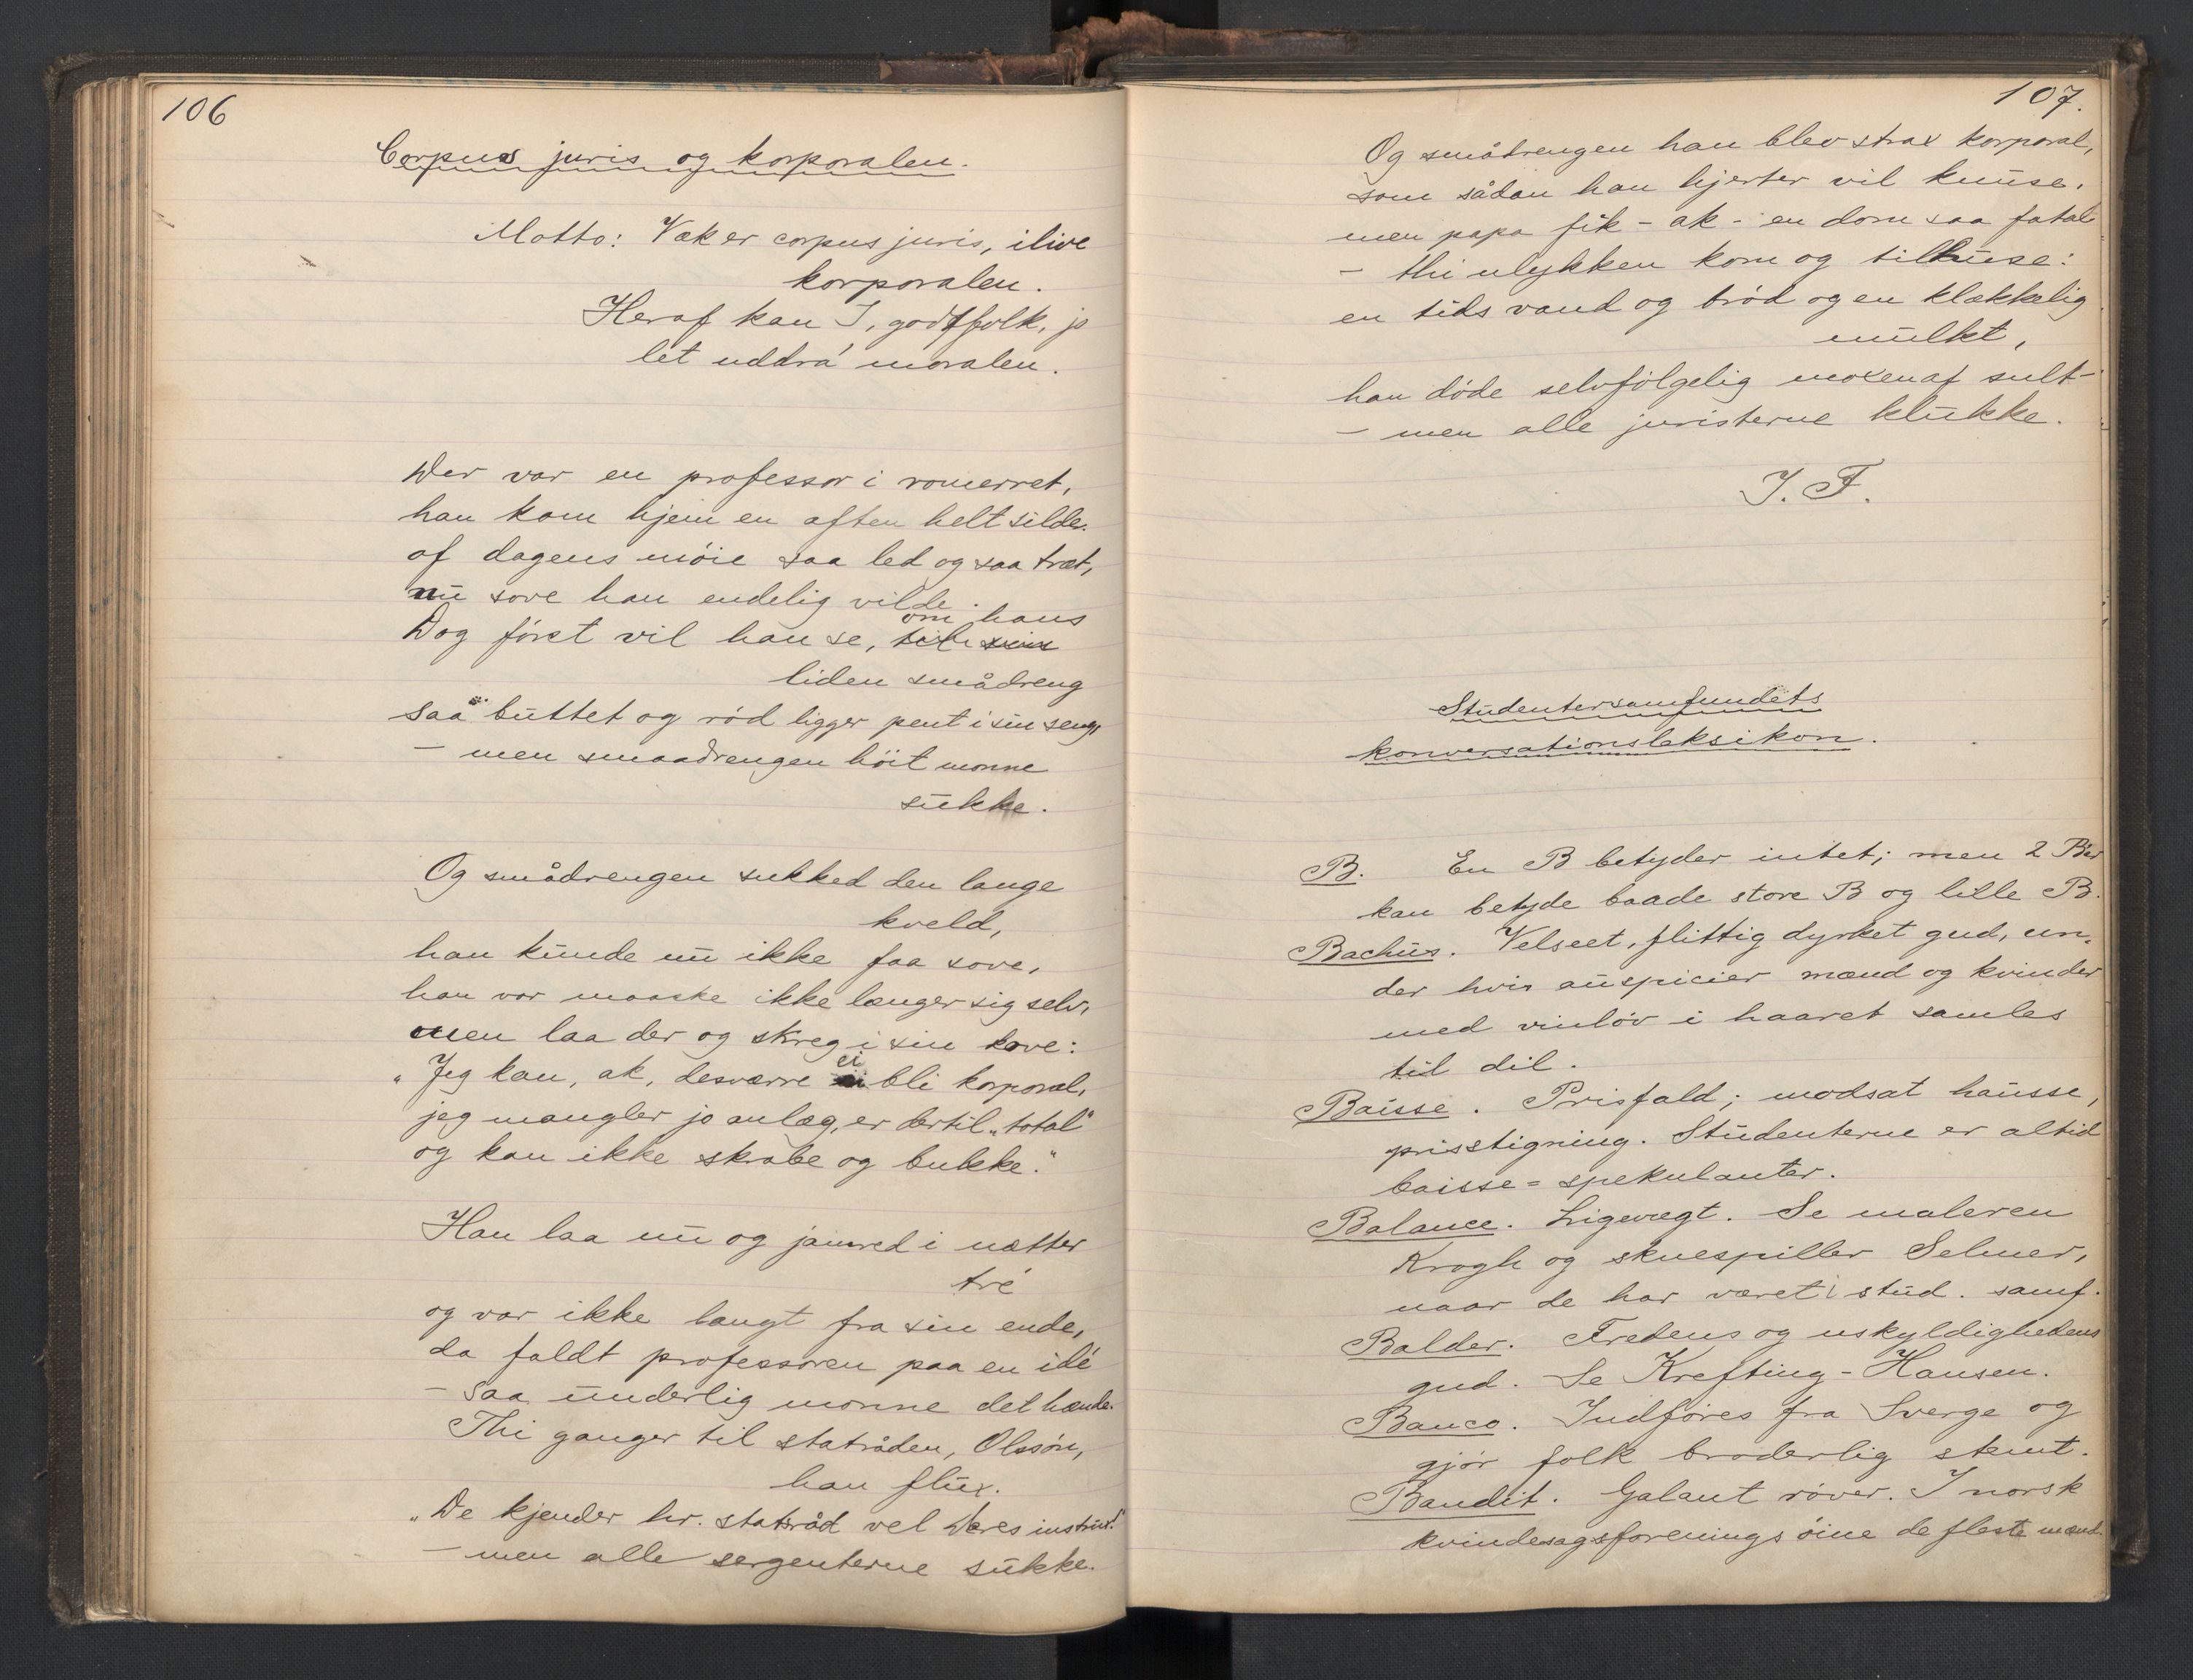 106
Corpus juris og korporalen.
Motto: Væk er corpus juris, ilive
korporalen.
Heraf kan I, godtfolk, jo
let uddra moralen.
Der var en professor i romerret,
han kom hjem en aften helt silde.
af dagens møie saa led og saa træt,
nu sove han endelig vilde.
Dog først vil han se, om hans
liden smådreng
saa buttet og rød ligger pent i sin seng,
– men smaadrengen høit monne
sukke.
Og smådrengen sukked den lange
kveld,
han kunde nu ikke faa sove,
han var maaske ikke længer sig selv,
men laa der og skreg i sin kove:
"Jeg kan, ak, desværre ei bli korporal,
jeg mangler jo anlæg, er dertil "total"
og kan ikke skrabe og bukke."
Han laa nu og jamred i nætter
tre
og var ikke langt fra sin ende,
da faldt professoren paa en idé
– saa underlig monne det hænde.
Thi ganger til statsråden, Olssøn,
han flux.
"De kjender hr. statsråd vel Deres instrux!"
– men alle sergenterne sukke.
107.
Og smådrengen han blev strax korporal,
som sådan han hjerter vil knuse,
men papa fik – ak – en dom saa fatal
– thi ulykken kom og tilhuse:
en tids vand og brød og en klækkelig
mulkt,
han døde selvfølgelig moxen af sult –
– men alle juristerne klukke.
J. F.
Studentersamfundets
konversationsleksikon.
B. En B betyder intet; men 2 B'er
kan betyde baade store B og lille B.
Bachus. Velseet, flittig dyrket gud, un-
der hvis auspicier mænd og kvinder
med vinløv i haaret samles
til dil.
Baisse. Prisfald; modsat hausse,
prisstigning. Studenterne er altid
baisse-spekulanter.
Balance. Ligevægt. Se maleren
Krogh og skuespiller Selmer,
naar de har været i stud. samf.
Balder. Fredens og uskyldighedens
gud. Se Krefting-Hansen.
Banco. Indføres fra Sverge og
gjør folk broderlig stemt.
Bandit. Galant røver. I norsk
kvindesagsforenings øine de fleste mænd